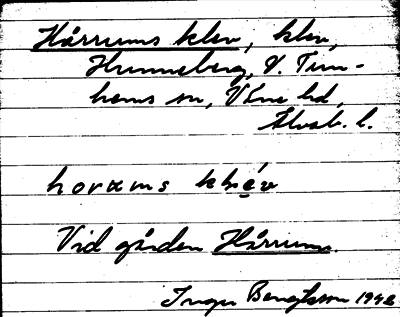 Hårrums klev, klev,
Hunneberg, V. Tun-
hems sn, Väne hd,
Älvsb. l.
horams kle̱v
Vid gården Hårrums.
Inger Bengtsson 1942